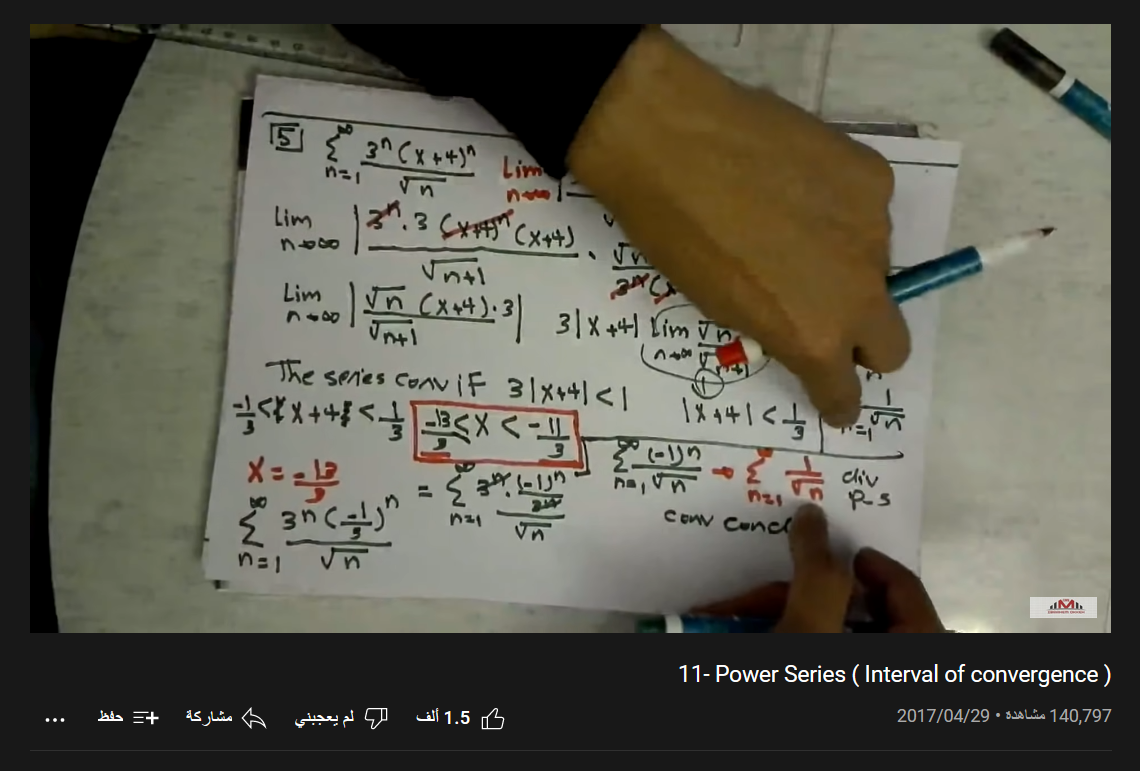 5 ∞ Σ n=1 3ⁿ(x+4)ⁿ / √n Lim n→∞
Lim n→∞ | 3ⁿ·3 (x+4)ⁿ (x+4) / √n+1 ·
Lim n→∞ | √n (x+4)·3 / √n+1 | 3|x+4| Lim n→∞
The series conv iF 3|x+4| < 1
-1/3 < x+4 < 1/3 -13/3 < x < -11/3 |x+4| < 1/3 n=1 1/√n
x = -13/3
∞ Σ n=1 3ⁿ(-1/3)ⁿ / √n = ∞ Σ n=1 3ⁿ·(-1)ⁿ/3ⁿ / √n ∞ Σ n=1 (-1)ⁿ/√n → ∞ Σ n=1 1/√n div P-S
conv
11- Power Series ( Interval of convergence )
140,797 مشاهدة • 2017/04/29
1.5 ألف لم يعجبني مشاركة حفظ ...